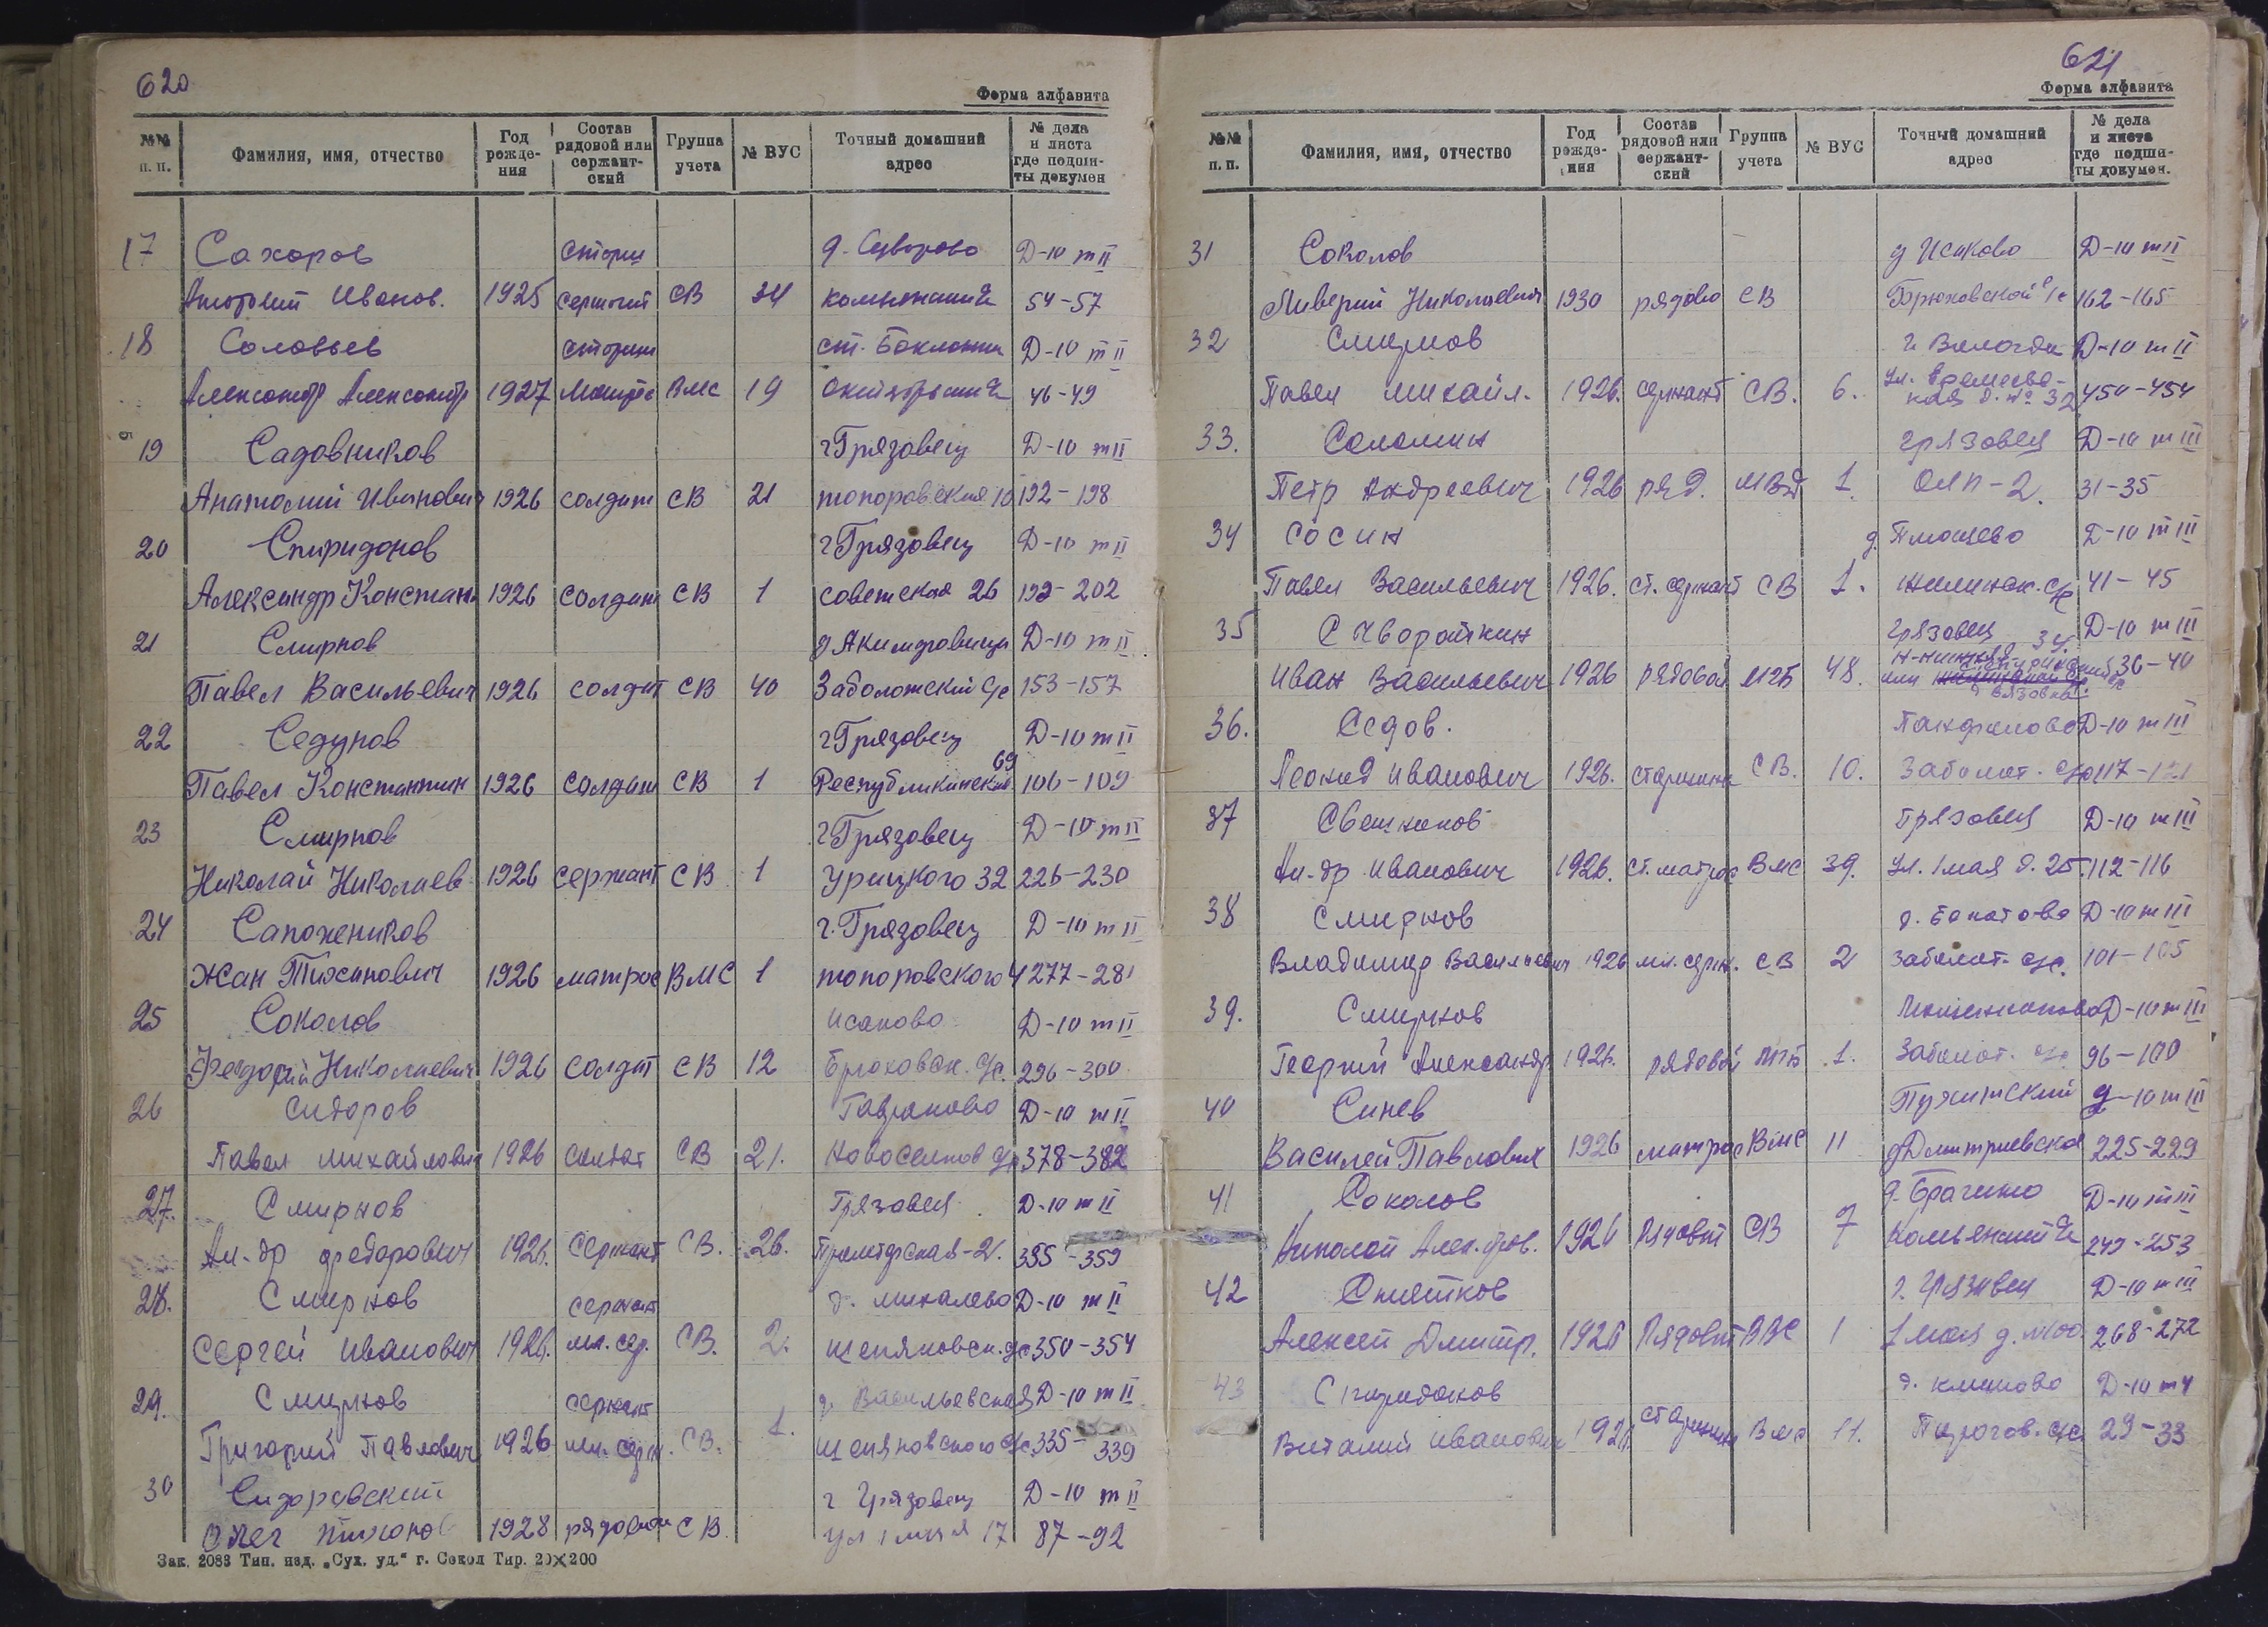 620
Форма алфавита
№№ п. п. Фамилия, имя, отчество Год рожде- ния Состав рядовой или сержант- ский Группа учета № ВУС Точный домашний адрес № дела и листа где подши- ты докумен
17 Сахоров старш д. Суворово Д-10 т II
Анатолий Иванов. 1925 сержант СВ 34 54-57
18 Соловьев старши ст. Бакланка Д-10 т II
Александр Александр 1927 Матрос ВМС 19 46-49
19 Садовников г Грязовец Д-10 т II
Анатолий Иванович 1926 солдат СВ 21 топоровския 10 192-198
20 Спиридонов г Грязовец Д-10 т II
Александр Констан 1926 солдат СВ 1 советская 26 199-202
21 Смирнов д Акимовица Д-10 т II
Павел Васильевич 1926 солдат СВ 40 Заболотский с/с 153-157
22 Седунов г Грязовец Д-10 т II
Павел Константин 1926 солдат СВ 1 Республиканская 69 106-109
23 Смирнов г Грязовец Д-10 т II
Николай Николаев 1926 сержант СВ 1 Урицкого 32 226-230
24 Сапожеников г. Грязовец Д-10 т II
Жан Тихинович 1926 матрос ВМС 1 топоровского 4 277-281
25 Соколов Исаково Д-10 т II
Феодосий Николаевич 1926 солдат СВ 12 Брюховск. с/с. 296-300
26 Сидоров Гаврюково Д-10 т II
Павел Михайлович 1926 солдат СВ 21. Новоселков с/с 378-382
27. Смирнов Грязовец Д-10 т II
Ал-др Федорович 1926. сержант СВ. 26. Пролетарская-21. 355-359
28. Смирнов сержант д. Михалево Д-10 т II
Сергей Иванович 1926. мл. сер. СВ. 2. щепяковск. с/с 350-354
29. Смирнов сержант д. Васильевская Д-10 т II
Григорий Павлович 1926 мл. серж. СВ. 1. щепяновского с/с. 335-339
30 Сидоровский г Грязовец Д-10 т II
Олег Тихонов 1928 рядовой СВ ул 1 мая 17 87-92
Зак. 2083 Тип. изд. „Сух. уд.“ г. Сокол Тир. 20×200
621
Форма алфавита
№№ п. п. Фамилия, имя, отчество Год рожде- ния Состав рядовой или сержант- ский Группа учета № ВУС Точный домашний адрес № дела и листа где подши- ты докумен.
31 Соколов д Исаково Д-10 т II
Ливерий Николаевич 1930 рядово СВ Брюховской с/с 162-165
32 Смирнов г. Вологда Д-10 т II
Павел Михайл. 1926. сержант СВ. 6. ул. д. № 32 450-454
33. Соломин Грязовец Д-10 т III
Петр Андреевич 1926 ряд. МВД 1. ОЛП-2. 31-35
34 Сосин д. Плющево Д-10 т III
Павел Васильевич 1926. ст. сержант СВ 1. жилинск. с/с 41-45
35 Скворашкин Грязовец Д-10 т III
Иван Васильевич 1926 рядовой МГБ 48. или 36-40
36. Седов. Панфилово Д-10 т III
Леонид Иванович 1926. старшина СВ. 10. Заболот. с/с 117-121
37 Свешников Грязовец Д-10 т III
Ал-др Иванович 1926. ст. матрос ВМС 39. ул. 1 мая д. 25. 112-116
38 Смирнов д. Бакотово Д-10 т III
Владимир Васильевич 1926 мл. серж. СВ 2 Заболот. с/с. 101-105
39. Смирнов Д-10 т III
Георгий Александр. 1926. рядовой МГБ 1. Заболот. с/с 96-100
40 Синев Пухитский Д-10 т III
Василей Павлович 1926 матрос ВМС 11 д Дмитриевское 225-229
41 Соколов д. Брагино Д-10 т III
Николай Алек. 1926 Рядовой СВ 7 249-253
42 Снятков г. Грязовец Д-10 т III
Алексей Дмитр. 1926 Рядовой ВВС 1 1 мая д. №100 268-272
43 Спиридонов д. климово Д-10 т 4
Виталий Иванович 1926. старшина Вмс 11. Пирогов. с/с 29-33